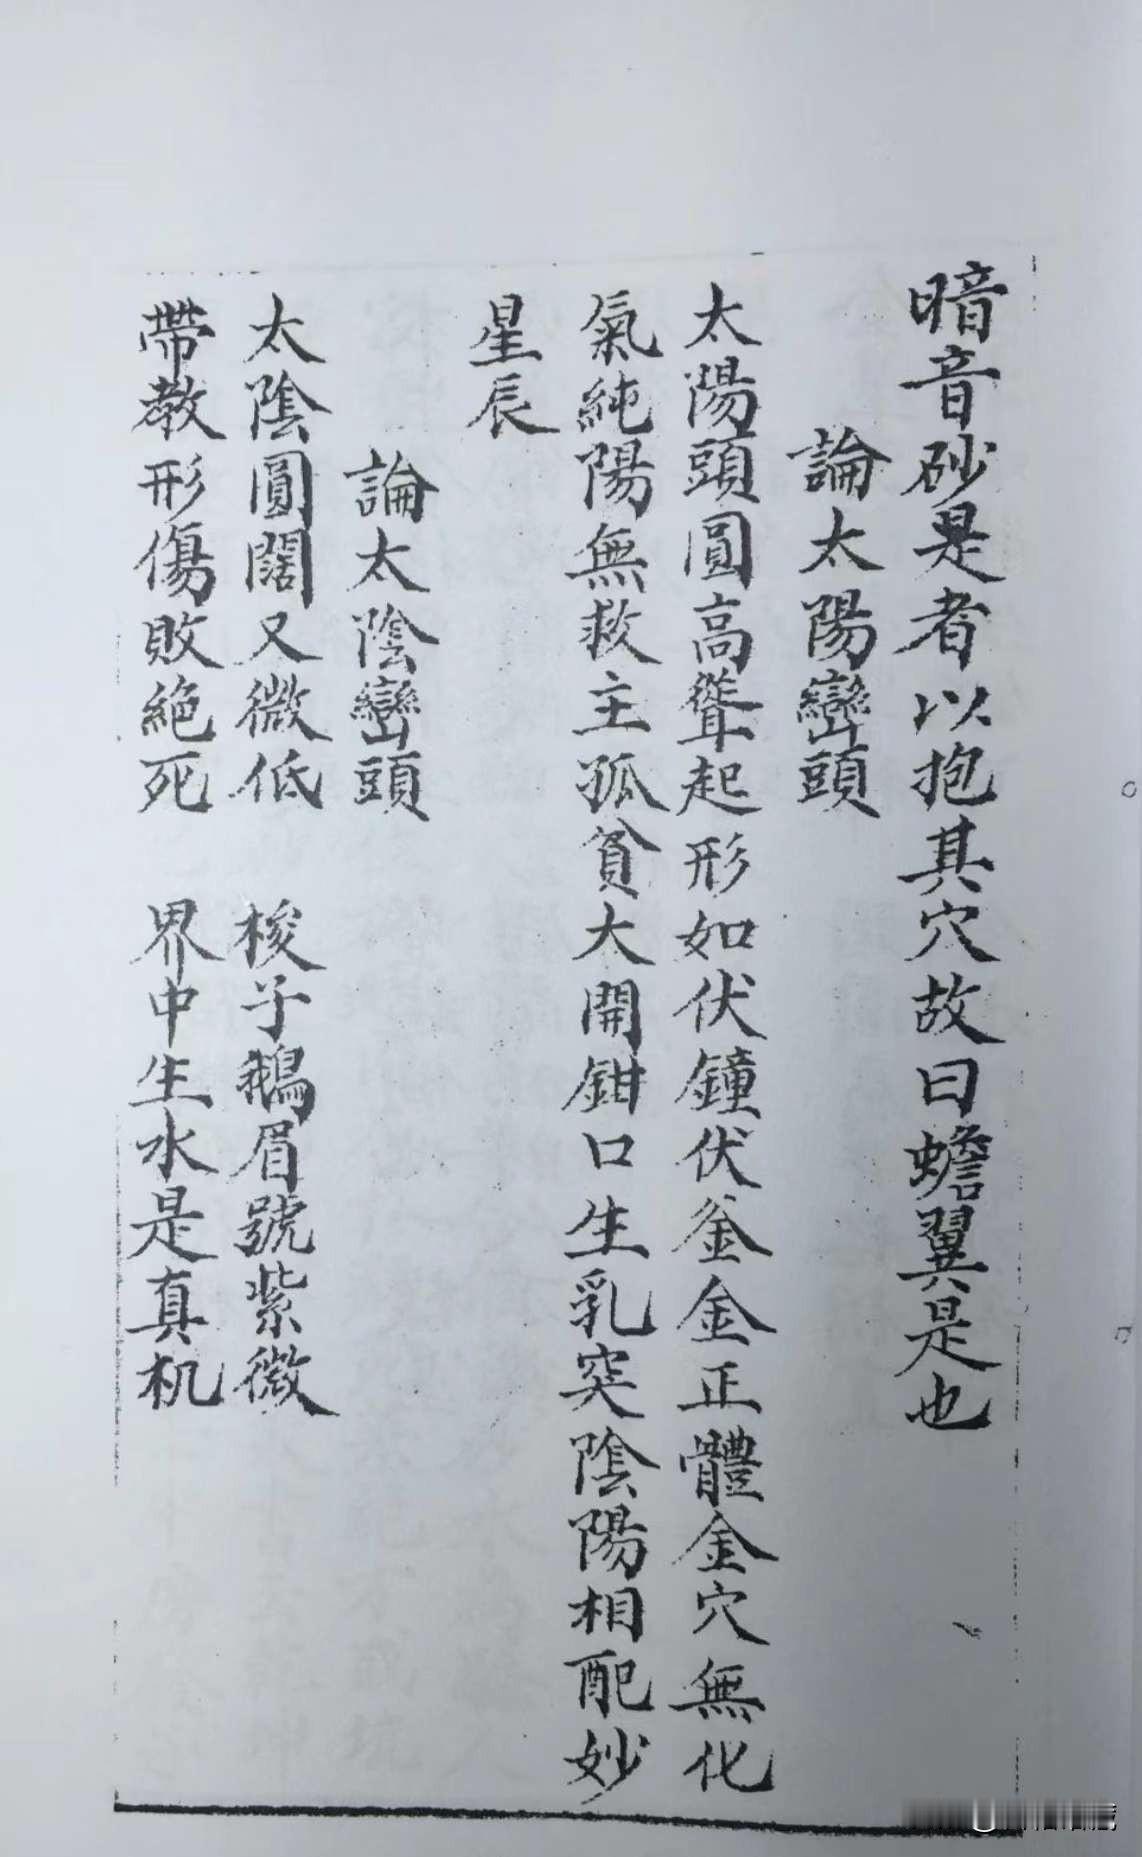 暗音砂是者以抱其穴故曰蟾翼是也
論太陽巒頭
太陽頭圓高聳起形如伏鐘伏釜金正體金穴無化
氣純陽無救主孤貧大開鉗口生乳突陰陽相配妙
星辰
論太陰巒頭
太陰圓闊又微低 梭子鵝眉號紫微
帶教形傷敗絕死 界中生水是真机